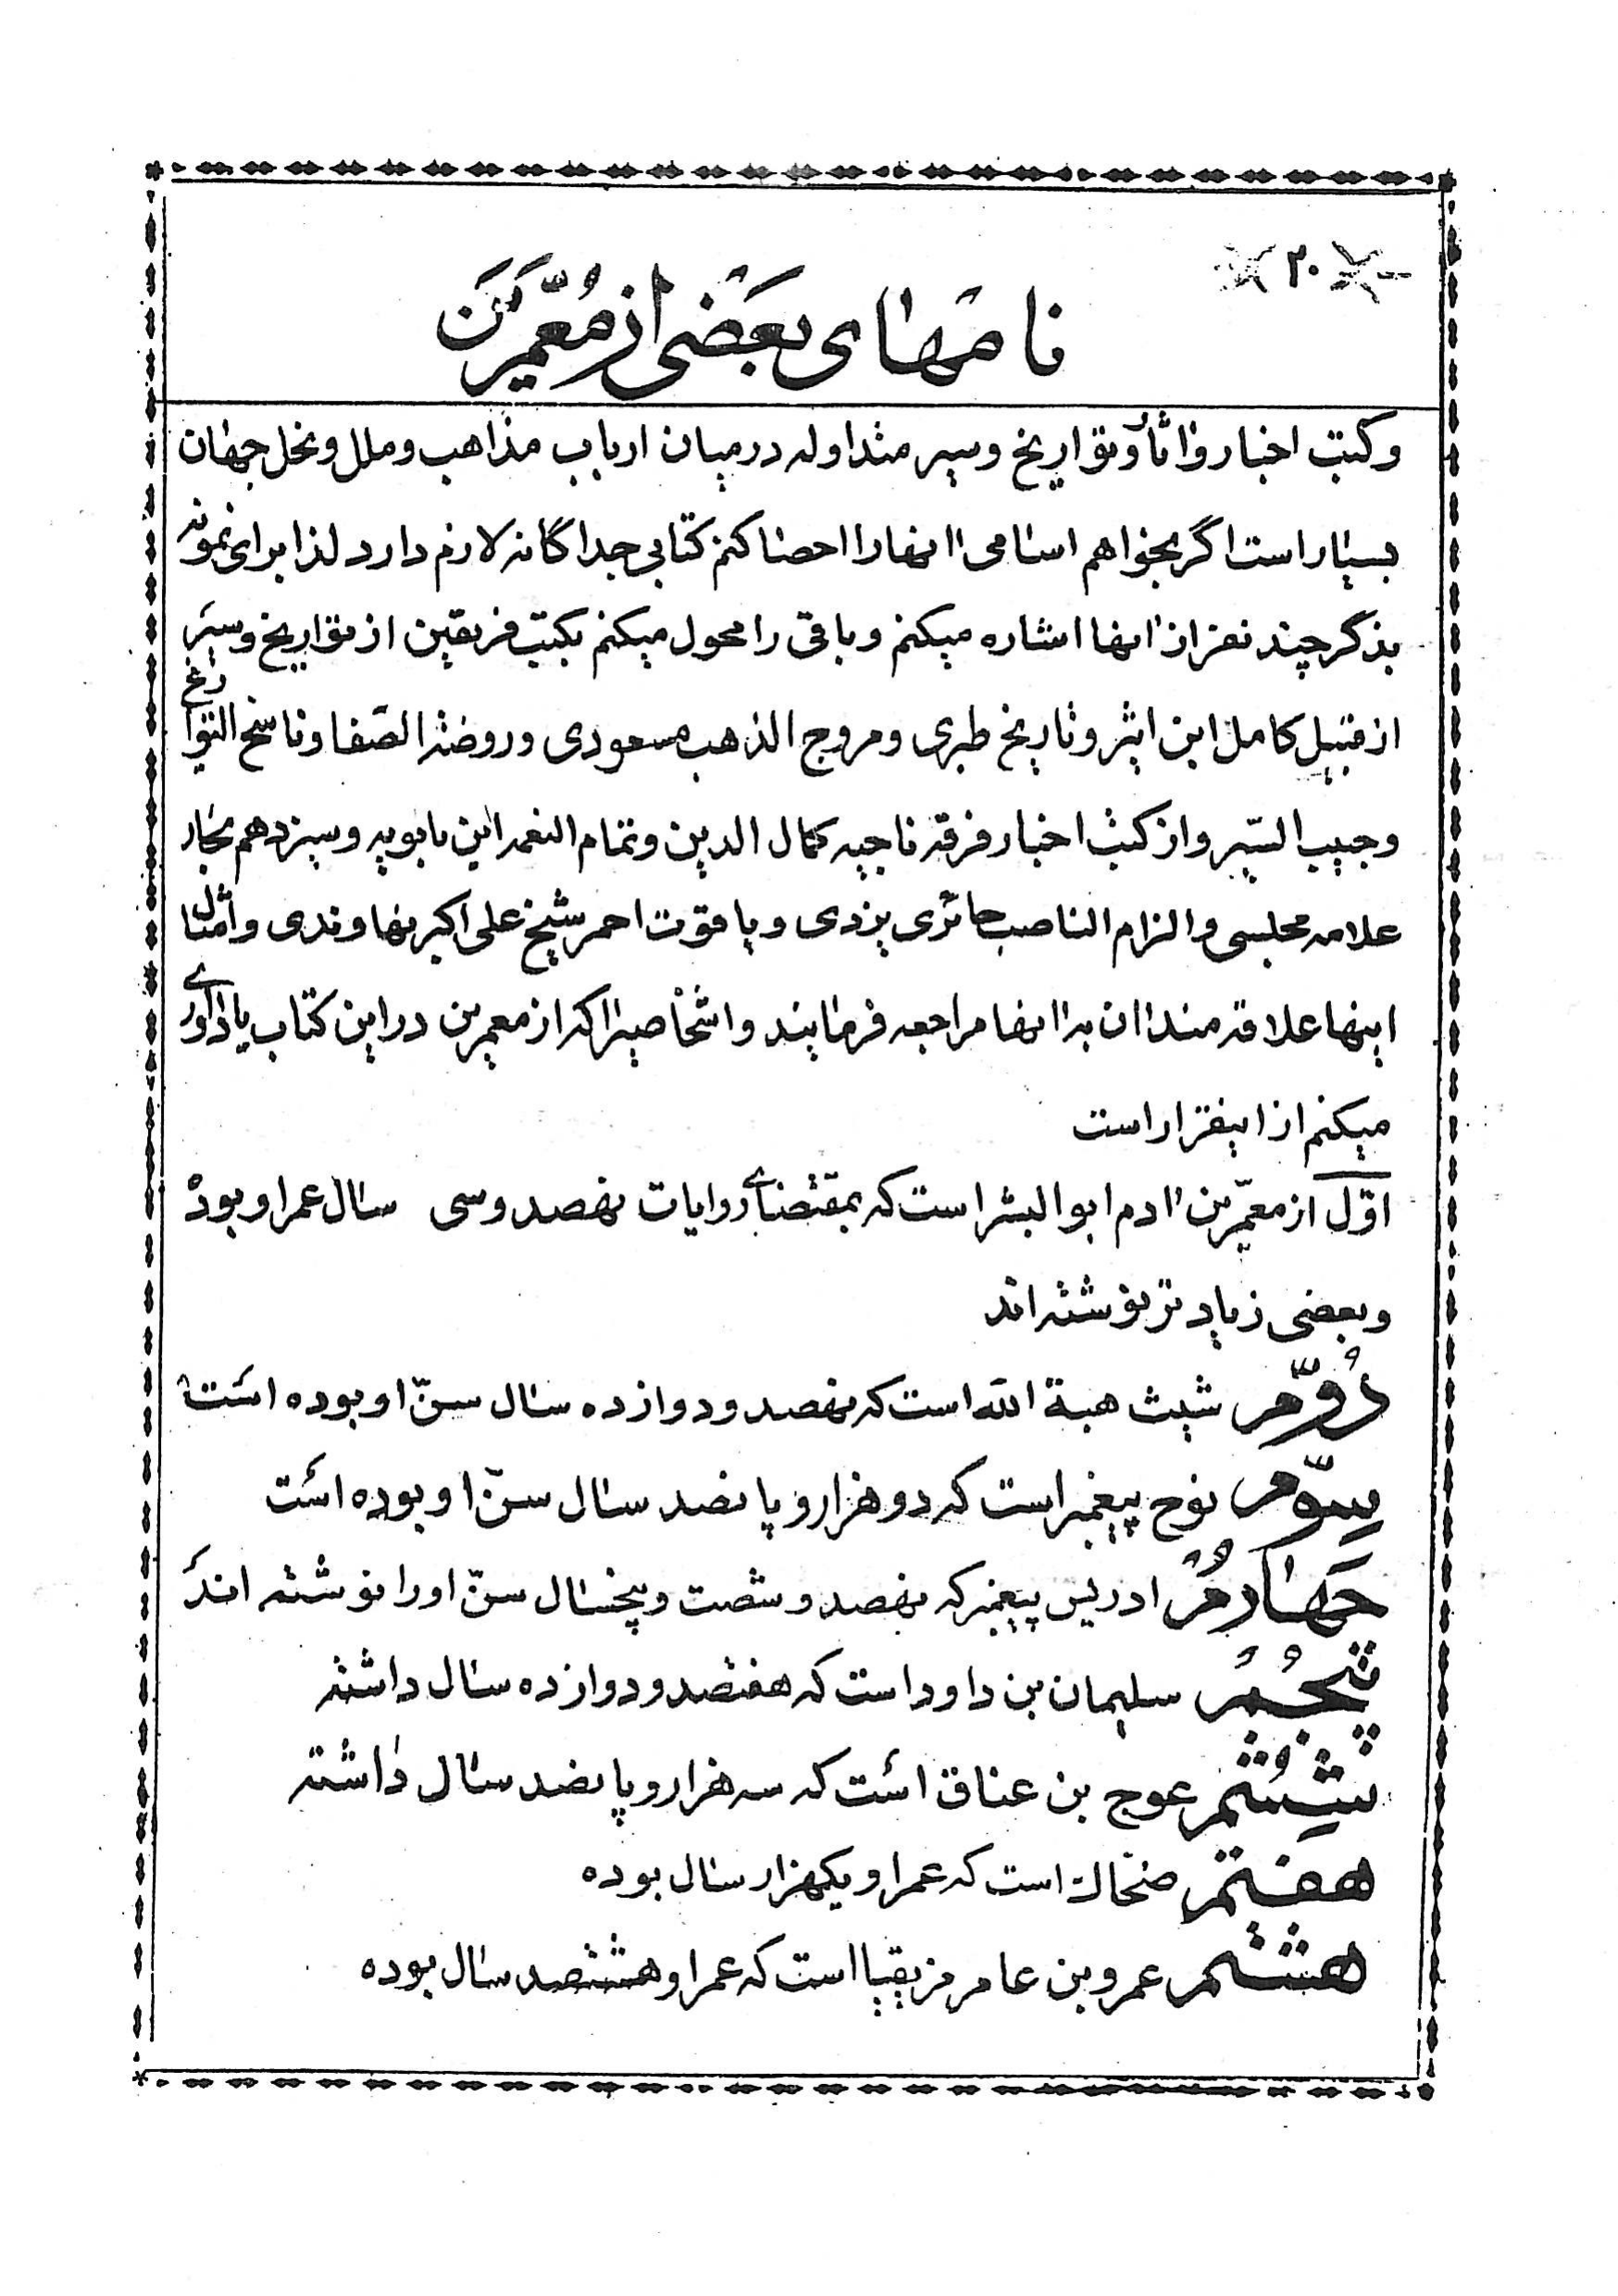 ۳۰
نامهای بعضی از معمّرین
و کتب اخبار و اثار و تواریخ و سیر متداوله در میان ارباب مذاهب و ملل و نحل جهان
بسیار است اگر بخواهم اسامی انها را احصا کنم کتابی جداگانه لازم دارد لذا برای نمونه
بذکر چند نفر از انها اشاره میکنم و باقی را محول میکنم بکتب فریقین از تواریخ و سیر
از قبیل کامل ابن اثیر و تاریخ طبری و مروج الذهب مسعودی و روضة الصّفا و ناسخ التواریخ
و حبیب السّیر و از کتب اخبار فرقه ناجیه کمال الدین و تمام النعمه ابن بابویه و سیزدهم بحار
علامه مجلسی و الزام الناصب حائری یزدی و یاقوت احمر شیخ علی اکبر نهاوندی و امثال
اینها علاقه مندان به انها مراجعه فرمایند و اشخاصیرا که از معمرین در این کتاب یاداوری
میکنم از اینقرار است
اوّل از معمّرین ادم ابوالبشر است که بمقتضای روایات نهصد و سی سال عمر او بود
و بعضی زیادتر نوشته اند
دُوّم شیث هبة الله است که نهصد و دوازده سال سنّ او بوده است
سِوّم نوح پیغمبر است که دو هزار و پانصد سال سنّ او بوده است
چهارُم ادریس پیغمبر که نهصد و شصت و پنجسال سنّ او را نوشته اند
پنجُم سلیمان بن داود است که هفتصد و دوازده سال داشته
شِشُم عوج بن عناق است که سه هزار و پانصد سال داشته
هفتم ضحّاک است که عمر او یکهزار سال بوده
هشتم عمرو بن عامر مزیقیا است که عمر او هشتصد سال بوده